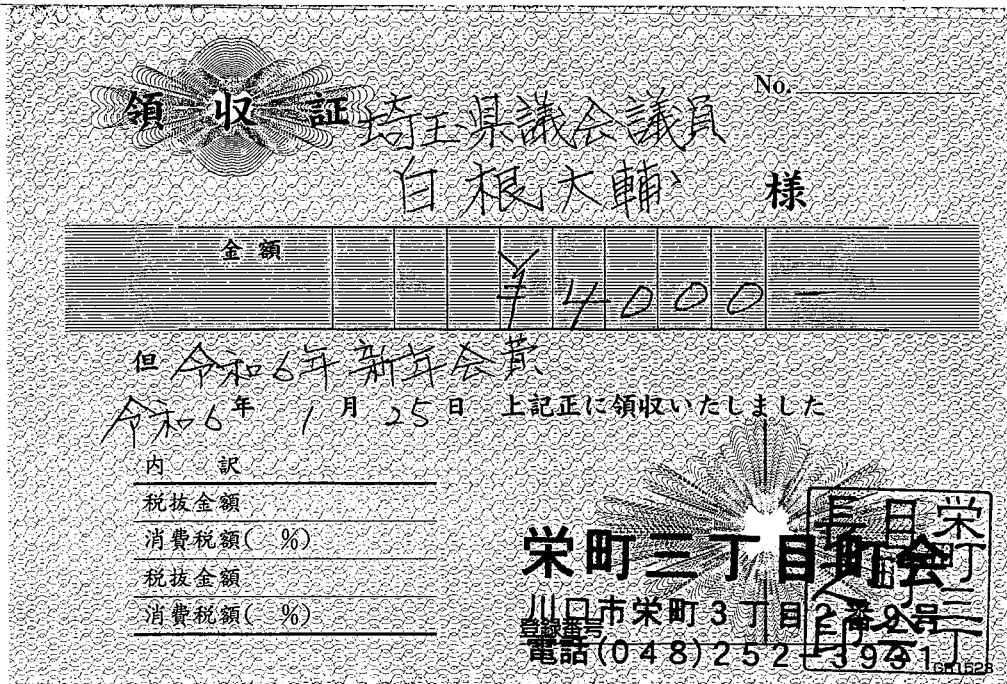 領収証
No.
埼玉県議会議員
白根大輔 様
金額
¥4000-
但 令和6年新年会費
令和6年1月25日 上記正に領収いたしました
内訳
税抜金額
消費税額( %)
税抜金額
消費税額( %)
栄町三丁目町会
川口市栄町3丁目2番9号
登録番号
電話(048)252-3931
栄町三丁目町会長之印
GR1528